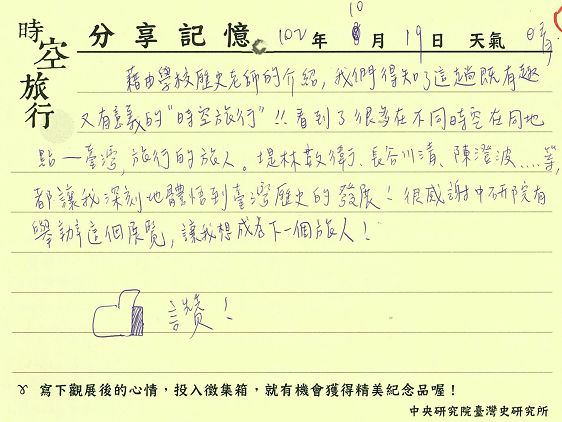 時空旅行
分享記憶 102年10月19日 天氣 晴
藉由學校歷史老師的介紹，我們得知了這趟既有趣
又有意義的"時空旅行"!! 看到了很多在不同時空在同地
點—臺灣，旅行的旅人。堤林數衛、長谷川清、陳澄波.....等，
都讓我深刻地體悟到臺灣歷史的發展！很感謝中研院有
舉辦這個展覽，讓我想成為下一個旅人！
讚！
寫下觀展後的心情，投入徵集箱，就有機會獲得精美紀念品喔！
中央研究院臺灣史研究所